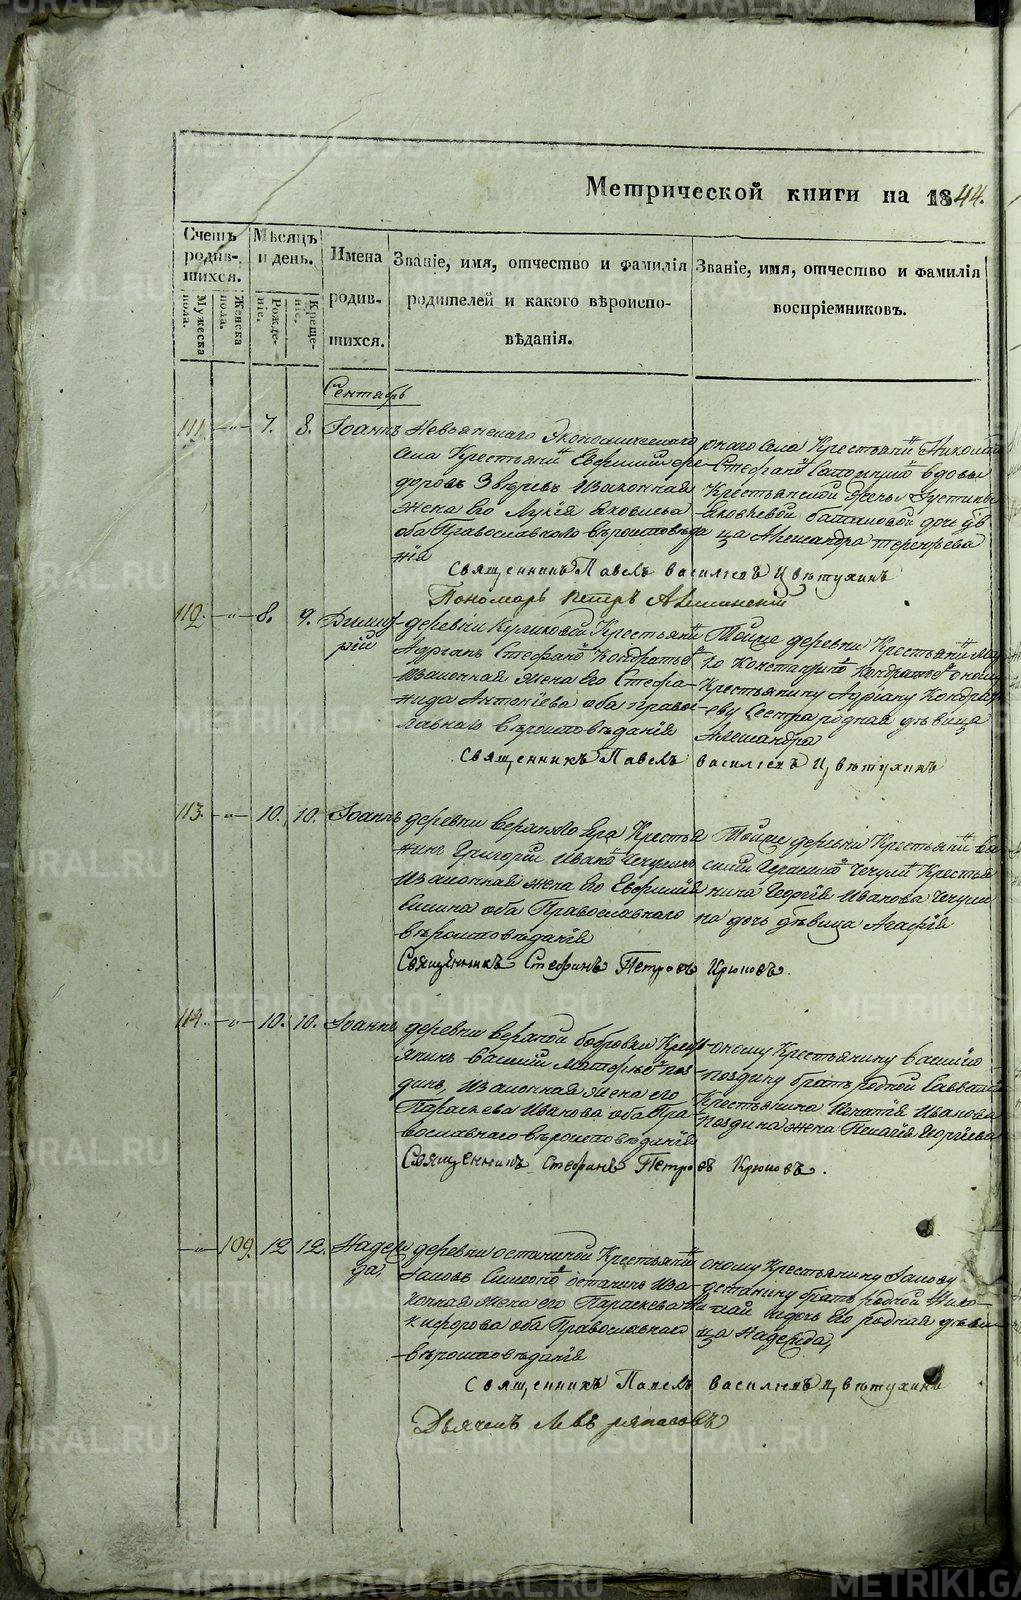 Метрической книги на 1844.
Счетъ родив-шихся.
Мѣсяцъ и день.
Имена родив-шихся.
Званіе, имя, отчество и фамилія родителей и какого вѣроиспо-вѣданія.
Званіе, имя, отчество и фамилія воспріемниковъ.
Мужеска пола.
Женска пола.
Рожде-ніе.
Креще-ніе.
Сентябрь
111. —„— 7. 8. Іоаннъ
Невьянскаго Экономическаго
села Крестьянинъ Евфимий Фе-
доровъ Звѣревъ и законная
жена его Яковлева
оба Православнаго вѣроисповѣда
нія
села Крестьянинъ Николай
Стефановъ вдовы
Крестьянской жены Iустины
Яковлевой дочь дѣв
ица Александра Терентьева
Священникъ Павелъ Васильевъ Цвѣтухинъ
Пономарь Петръ
112. —„— 8. 9. Димит-
рій
деревни Куликовой Крестьянинъ
Адріанъ Стефановъ Кондратьевъ
и законная жена его Стефа-
нида Антоніева оба право-
славнаго вѣроисповѣданія
Тойже деревни Крестьянинъ
Константиновъ Кондратьевъ оному
Крестьянину Адріану Кондрать-
еву Сестра родная дѣвица
Александра
Священникъ Павелъ Васильевъ Цвѣтухинъ
113. —„— 10. 10. Іоаннъ
деревни Яра Крестья
нинъ Григорій Ивановъ
и законная жена его Евфимія
оба Православнаго
вѣроисповѣданія
Тойже деревни Крестьянинъ Ва
силій Крестья
нина Георгія Иванова
на дочь дѣвица Агафія
Священникъ Стефанъ Петровъ Крюковъ.
114. —„— 10. 10. Іоаннъ
деревни Бобровки Крест-
янинъ Василий Матфѣевъ Поз
динъ, и законная жена его
Параскева Иванова оба Пра-
вославнаго вѣроисповѣданія
оному Крестьянину Василію
Поздину братъ родной
Крестьянина Игнатія Иванова
Поздина жена Пелагія
Священникъ Стефанъ Петровъ Крюковъ.
—„— 109. 12 12. Надеж
да,
деревни Останиной Крестьянинъ
Іаковъ Симеоновъ Останинъ и за-
конная жена его Параскева Ни-
кифорова оба Православнаго
вѣроисповѣданія
оному Крестьянину Іакову
Останину братъ родной Нико-
лай и дочь его родная дѣви
ца Надежда,
Священникъ Павелъ Васильевъ Цвѣтухинъ
Дьячекъ Левъ Ряпасовъ
METRIKI.GASO-URAL.RU